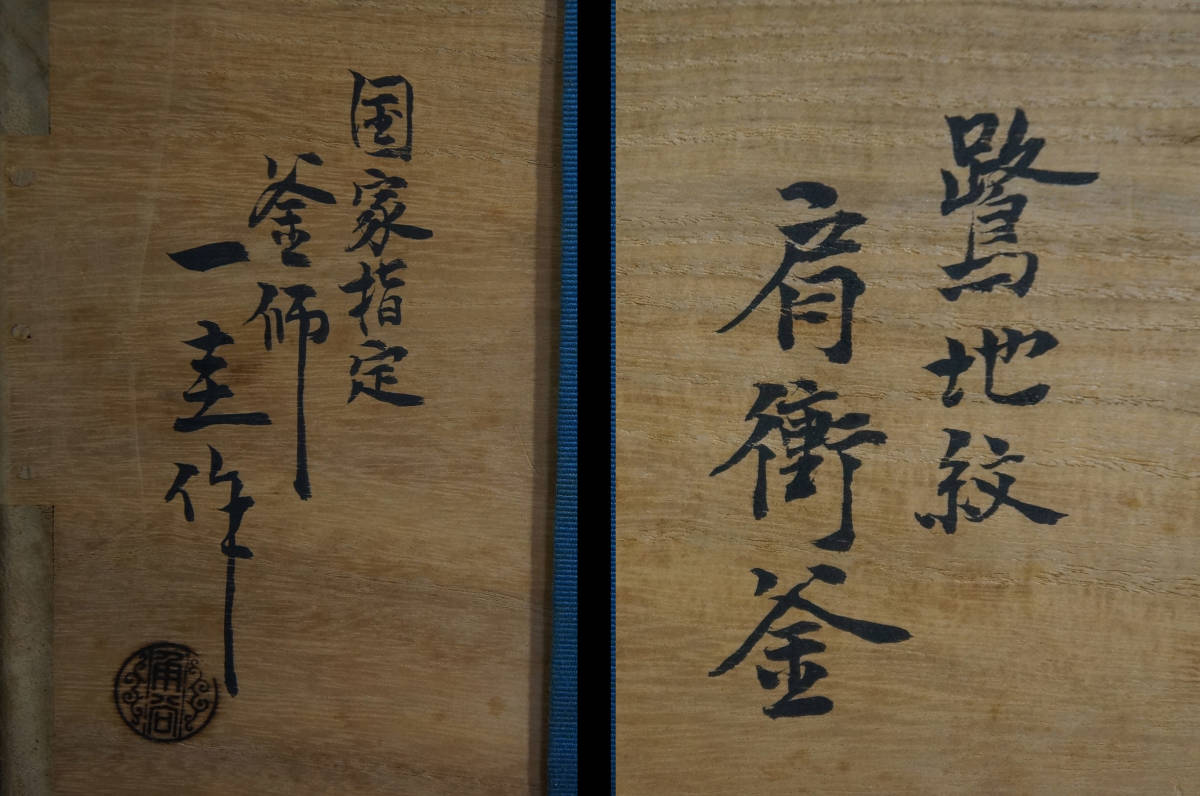 鷺地紋
肩衝釜
国家指定
釜師
一圭作
角谷